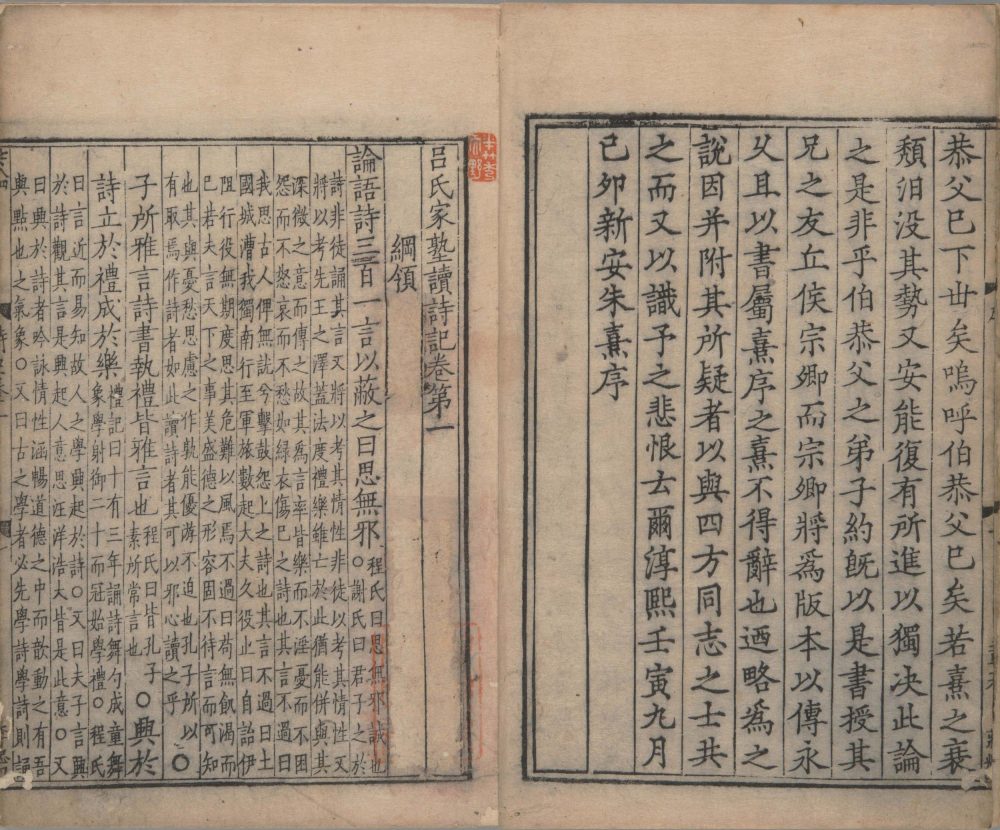 恭父已下世矣嗚呼伯恭父已矣若熹之衰
頹汨没其勢又安能復有所進以獨决此論
之是非乎伯恭父之弟子約旣以是書授其
兄之友丘侯宗卿而宗卿將爲版本以傳永
乆且以書屬熹序之熹不得辭也迺略爲之
說因并附其所疑者以與四方同志之士共
之而又以識予之悲恨云爾淳熙壬寅九月
己卯新安朱熹序
呂氏家塾讀詩記卷第一
綱領
論語詩三百一言以蔽之曰思無邪程氏曰思無邪誠也
○謝氏曰君子之於
詩非徒誦其言又將以考其情性非徒以考其情性又
將以考先王之澤蓋法度禮樂雖亡於此猶能併與其
深微之意而傳之故其爲言率皆樂而不淫憂而不困
怨而不怒哀而不愁如綠衣傷已之詩也其言不過曰
我思古人俾無訧兮擊鼓怨上之詩也其言不過曰土
國城漕我獨南行至軍旅數起大夫久役止曰自詒伊
阻行役無期度思其危難以風焉不過曰苟無飢渴而
已若夫言天下之事美盛德之形容固不待言而可知
也其與憂愁思慮之作孰能優游不迫也孔子所以
有取焉作詩者如此讀詩者其可以邪心讀之乎○
子所雅言詩書執禮皆雅言也程氏曰皆孔子
素所常言也○興於
詩立於禮成於樂禮記曰十有三年誦詩舞勺成童舞
象學射御二十而冠始學禮○程氏
曰言近而易知故人之學興起於詩○又曰夫子言興
於詩觀其言是興起人意思汪洋浩大皆是此意○又
曰興於詩者吟詠情性涵暢道德之中而歆動之有吾
與點也之氣象○又曰古之學者必先學詩學詩則誦